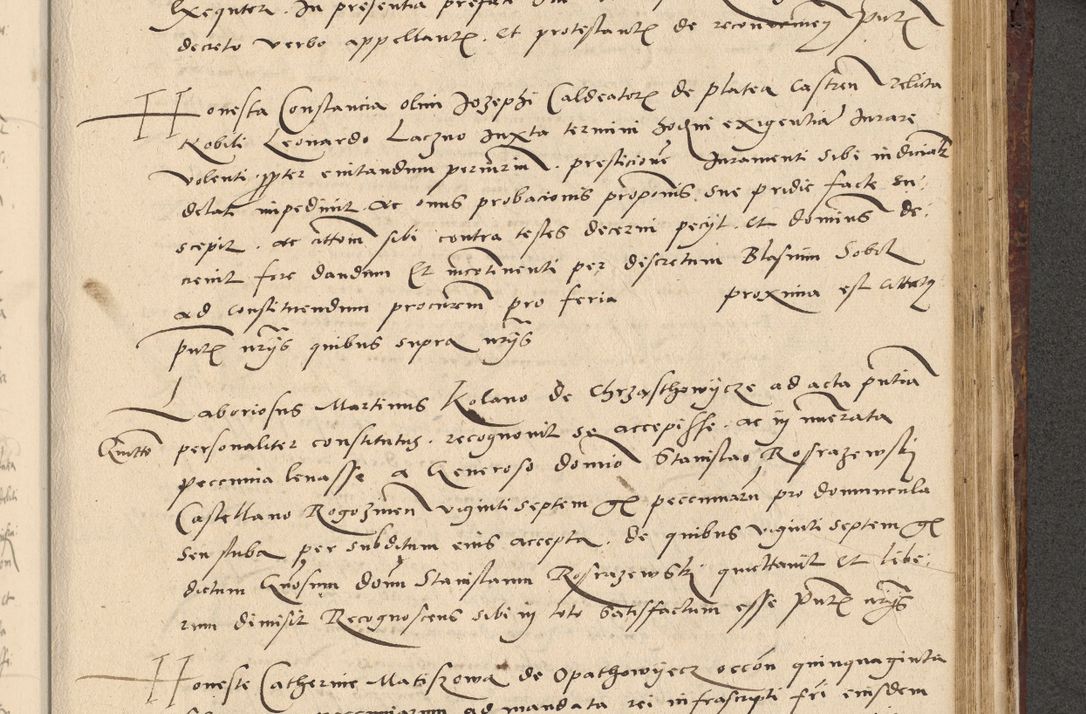 Exequtor. In presentia
decreto verbo appellantr. Et protestantr de reconvenien pntr
Honesta Constancia olim Jozephi Caldeatorr de platea Castren relicta
Nobili Leonardo Laczno Juxta termini hodni exigentia Jurare
volenti ppter evitandum periurium. presticione Juramenti sibi in
delati impedivit. ac onus probacionis proponis sue pridie facte. su:
scepit. ac attom sibi contra testes decerni peciit. Et dominus de:
crevit fore dandum Et incotinenti per discretum Blasium Sobek
ad constituendum procurem pro feria proxima est
Pntr nriis quibus supra nriis
Laboriosus Martinus Kolano de Chrzasthowycze ad acta pntia
Quitto
personaliter constitutus. recognovit se accepisse. ac in nuerata
peccunia levasse a Generoso domio Stanislao Rosrazewski
Castellano Rogozinen viginti septem gr peccuniaru pro domuncula
seu stuba per subditum eius accepta. de quibus viginti septem gr
dictum Gnosum dom Stanislaum Rosrazewski quittavit Et libe:
rum dimisit Recognoscens sibi in toto satisfactum esse Pntr nriis
Honeste Catherine Matiszowa de Opathowyecz occon quinquaginta
ad mandata rei infrascripti fri eiusdem